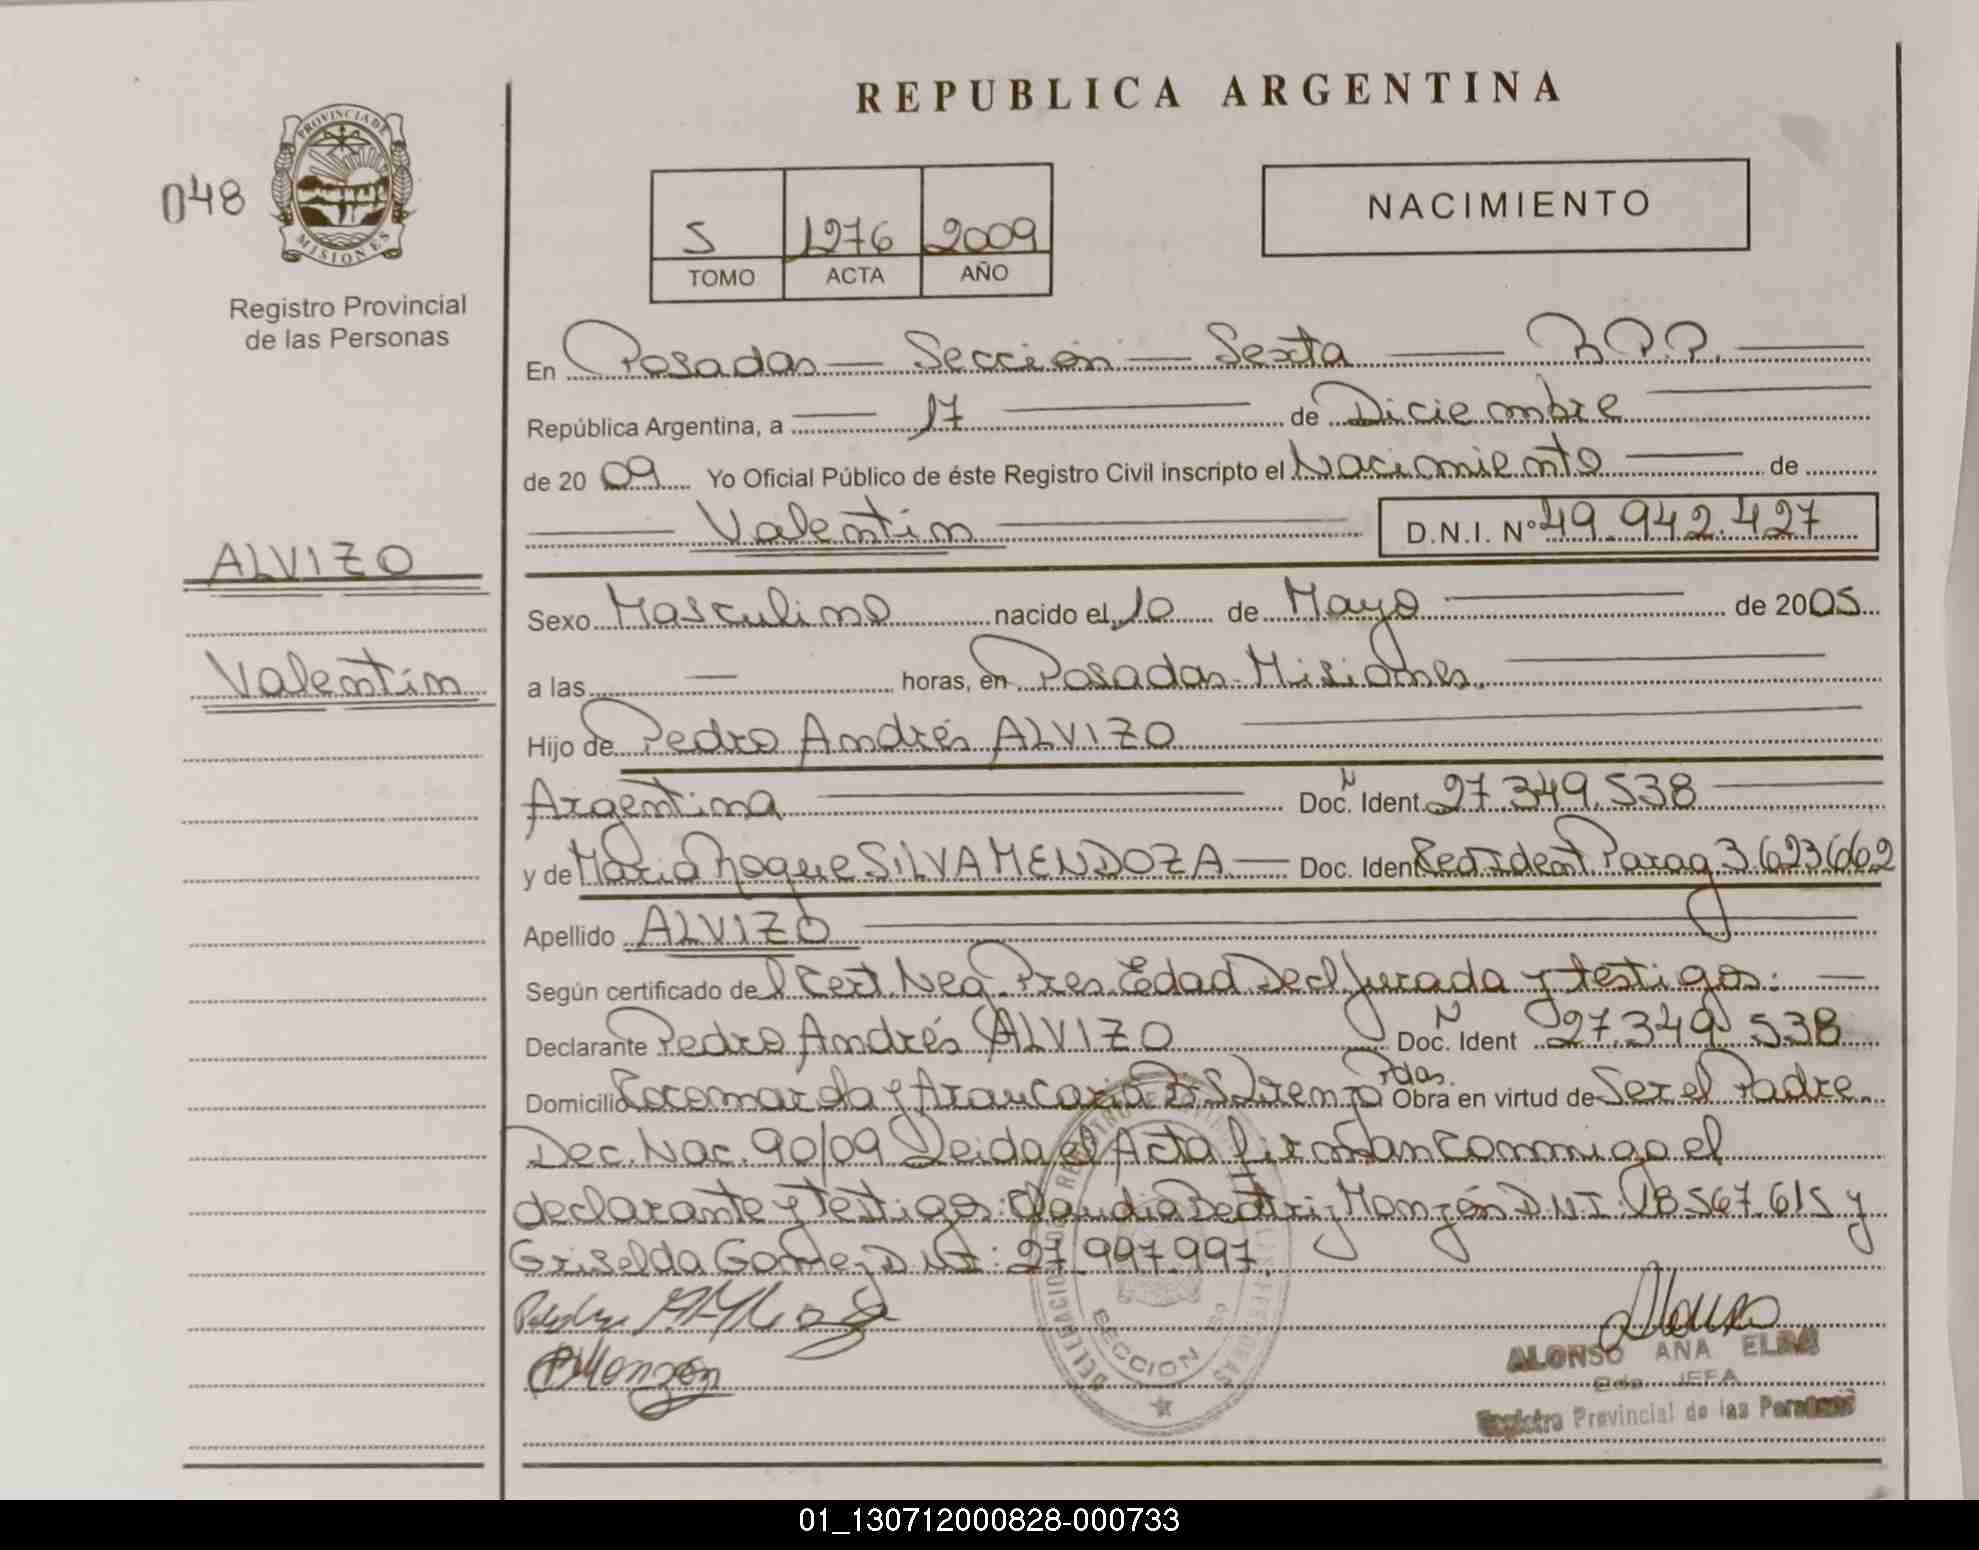 REPUBLICA ARGENTINA
048
PROVINCIA DE
MISIONES
Registro Provincial
de las Personas
NACIMIENTO
5 1276 2009
TOMO ACTA AÑO
En Posadas — Sección — Sexta — R.P.P.
República Argentina, a — 17 — de Diciembre
de 2009 Yo Oficial Público de éste Registro Civil inscripto el Nacimiento — de
Valentín D.N.I. Nº 49.942.427
ALVIZO
Valentín
Sexo Masculino nacido el 10 de Mayo de 2005
a las — horas, en Posadas-Misiones.
Hijo de Pedro Andrés ALVIZO
Argentina Doc. N Ident 27.349.538
y de María Roque SILVA MENDOZA — Doc. Ident Parag 3.623.662
Apellido ALVIZO
Según certificado del Cert. Neg. Pres. Edad Decl Jurada y testigos:
Declarante Pedro Andrés ALVIZO Doc. N Ident 27.349.538
Domicilio y Araucaria Pdas. Obra en virtud de Ser el Padre.
Dec. Nac. 90/09 Leida el Acta firman conmigo el
declarante y testigos: Claudia Beatriz Monzón D.N.I. 18.567.615 y
Griselda Gomez D.N.I: 27.997.997.
CBMonzón
SECCION 6º
ALONSO ANA ELBA
JEFA
Registro Provincial de las Personas
01_130712000828-000733